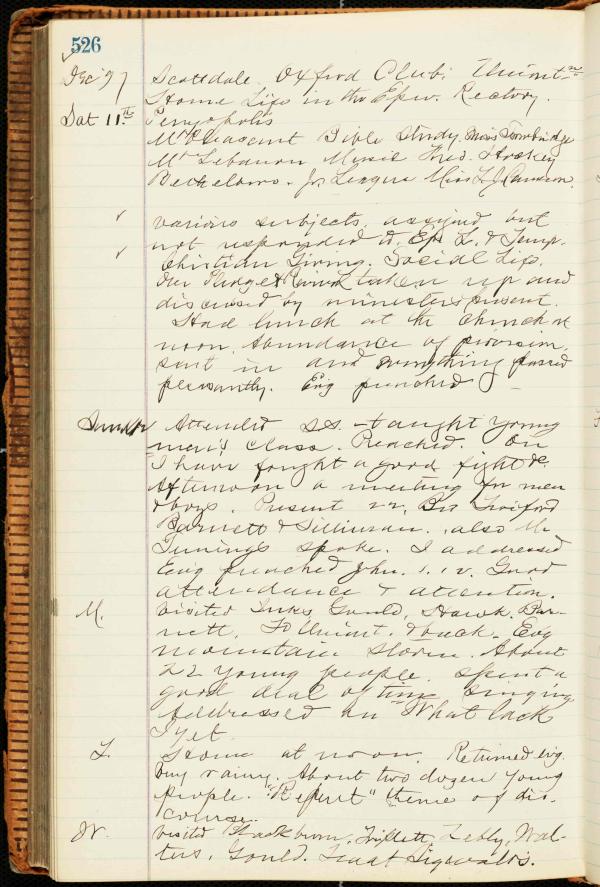 526
Dec '97 Scottdale. Oxford Club. Uniont-n
Home Life in the Epw. Rectory.
Sat 11.th Perryopolis
Mt Pleasant Bible Study. Miss Trowbridge
Mt Lebanon Music Fred.
Jr League Miss L J Cameron
✓ various subjects, assigned but
not responded to. Ep. L. & Temp.
✓ Christian Giving. Social Life.
Our Pledge & taken up and
discussed by ministers present.
Had lunch at the church at
noon. Abundance of provision
sent in and everything passed
pleasantly. Evg preached
Sunday Attended S.S. taught young
men's class. Preached. On
"I have fought a good fight &c.
Afternoon a meeting for men
& boys. Present 22, Bro
Barnett & Silliman. also Mr
Jennings spoke. I addressed
Evg preached John. 1. 12. Good
attendance & attention.
M. Visited Inks, Gould, Hawk. Bar-
nett, To Uniont. & back. Evg
mountain storm. About
22 young people. Spent a
good deal of time singing
Addressed on "What lack
I yet.
T. Home at noon. Returned evg.
very rainy. About two dozen young
people. "Repent" theme of dis-
course.
W. Visited Blackburn, Triflett, Wal-
ters, Gould.